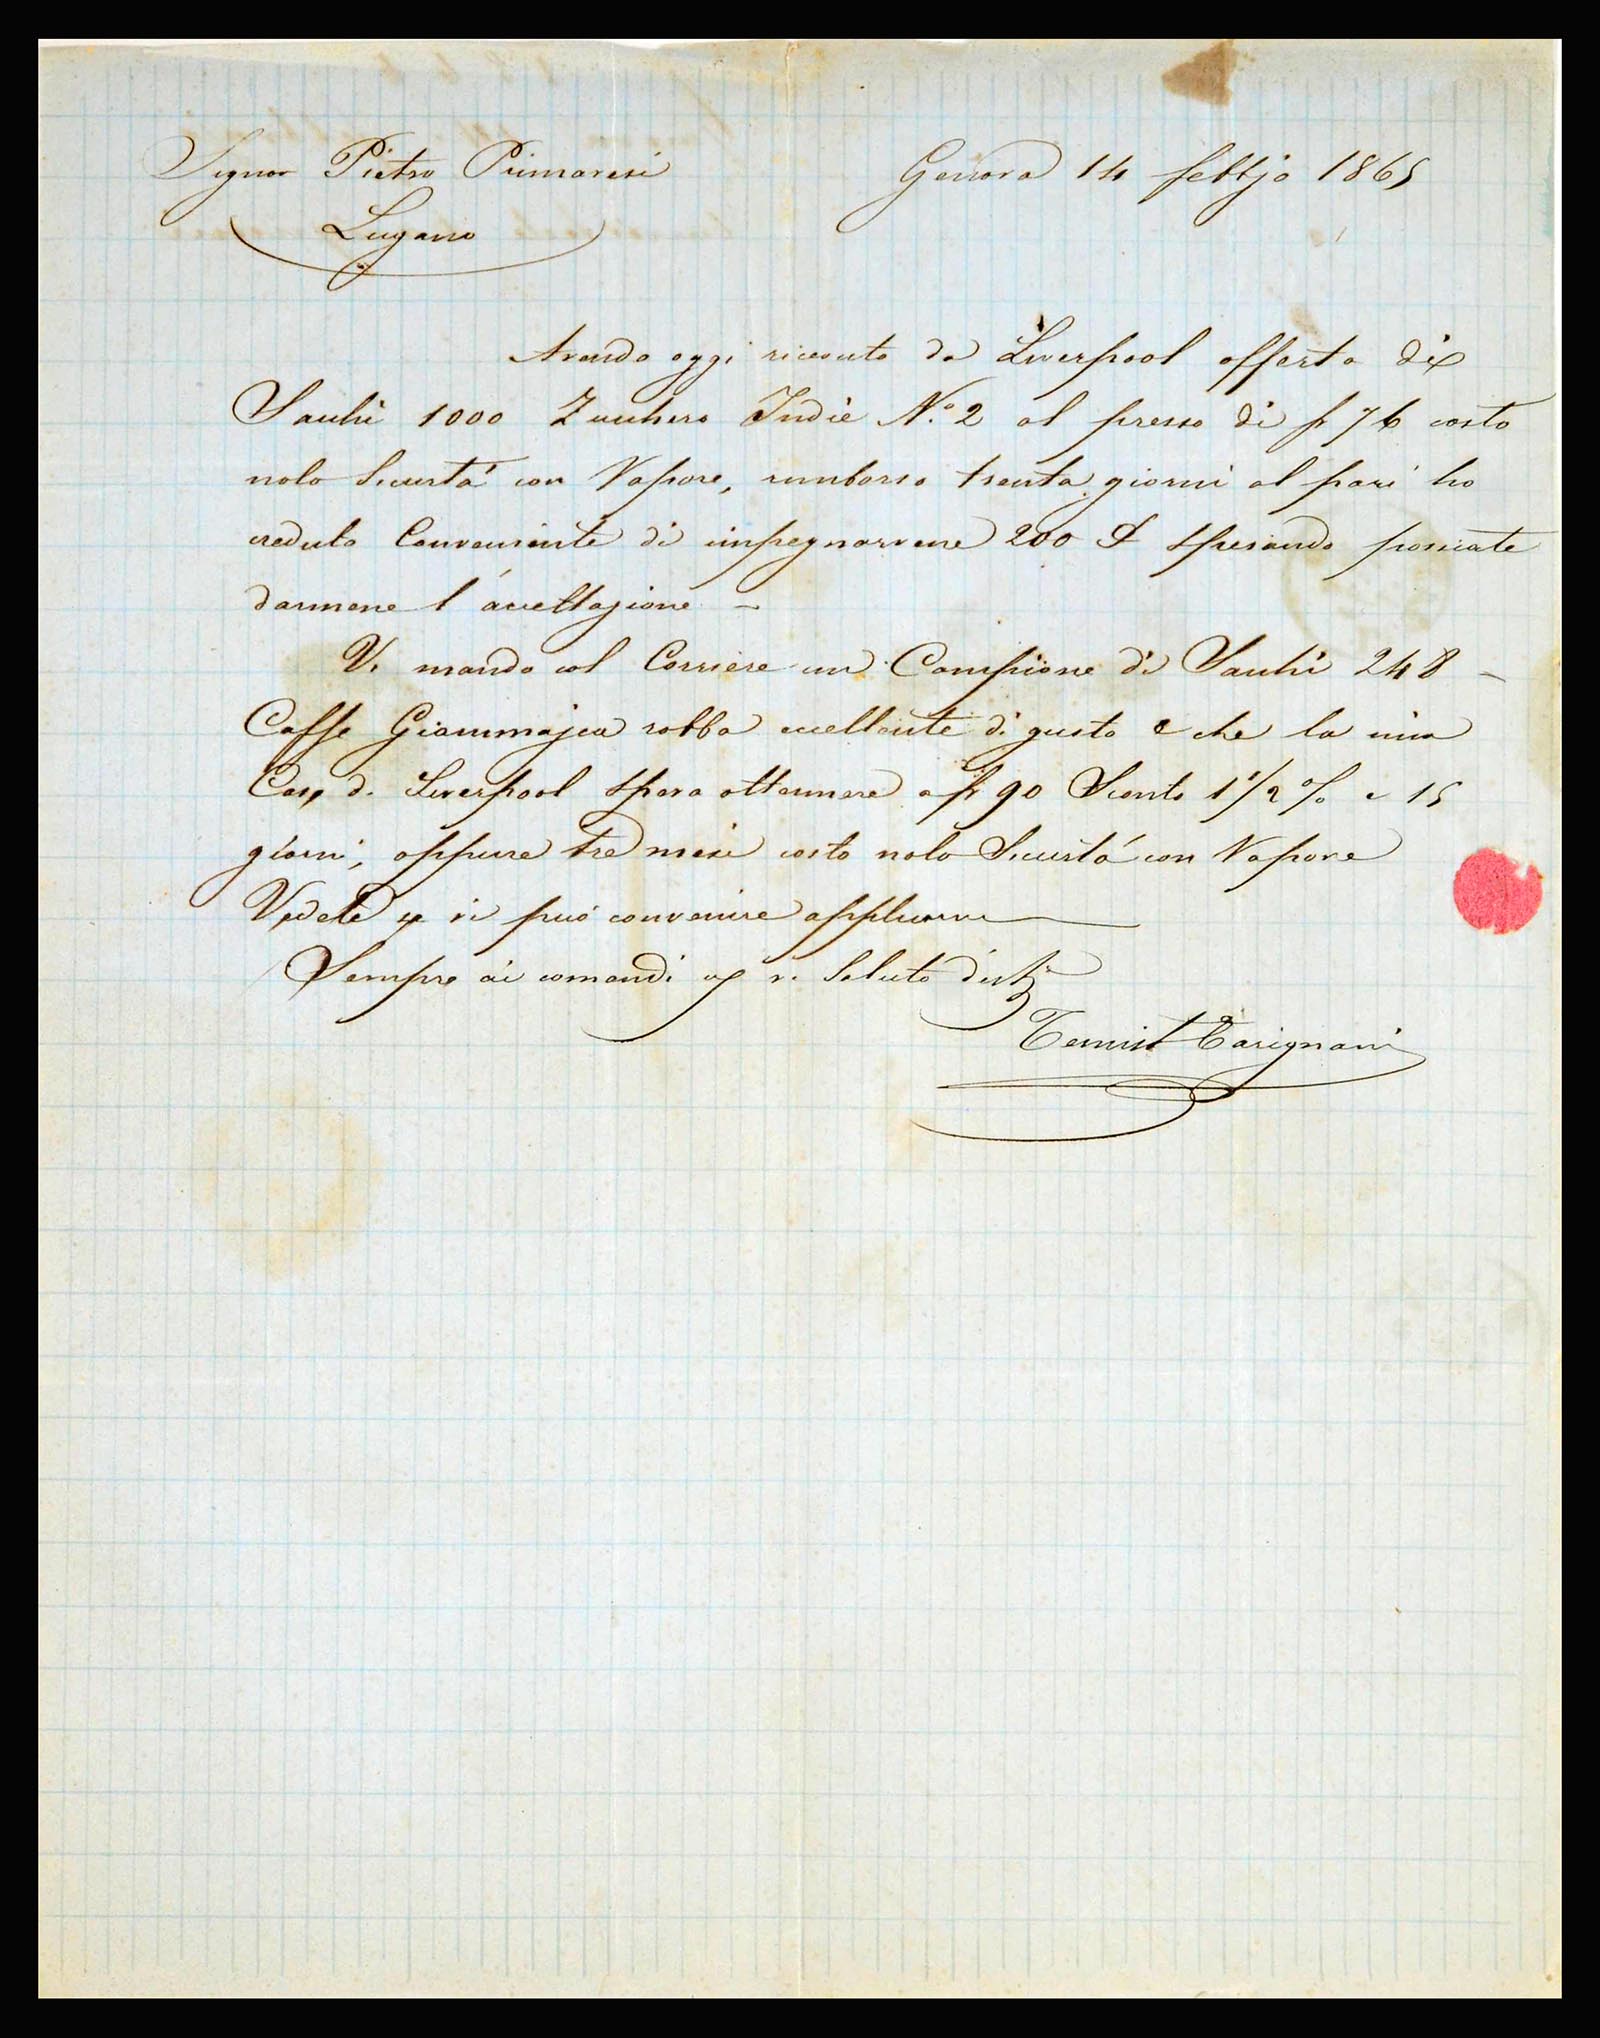 Signor Pietro Primavesi
Genova 14 febbjo 1865
Lugano
Avendo oggi ricevuto da Liverpool offerta di
Sacchi 1000 Zucchero Indie N.o 2 al presso di f 76 costo
nolo Sicurtá con Vapore, rimborso trenta giorni al pari ho
creduto Conveniente di impegnarvene 200 S sperando possiate
darmene l'accettazione -
Vi mando col Corriere un Campione di Sacchi 248 -
Caffe Giammajca robba eccellente di gusto e che la mia
Casa di Liverpool spera ottennere a f 90 Sconto 1 1/2 % e 15
giorni, oppure tre mesi costo nolo Sicurtá con Vapore
Vedete se vi puó convenire applicarvi
Sempre ai comandi vi Saluto distte
Temist Carignani